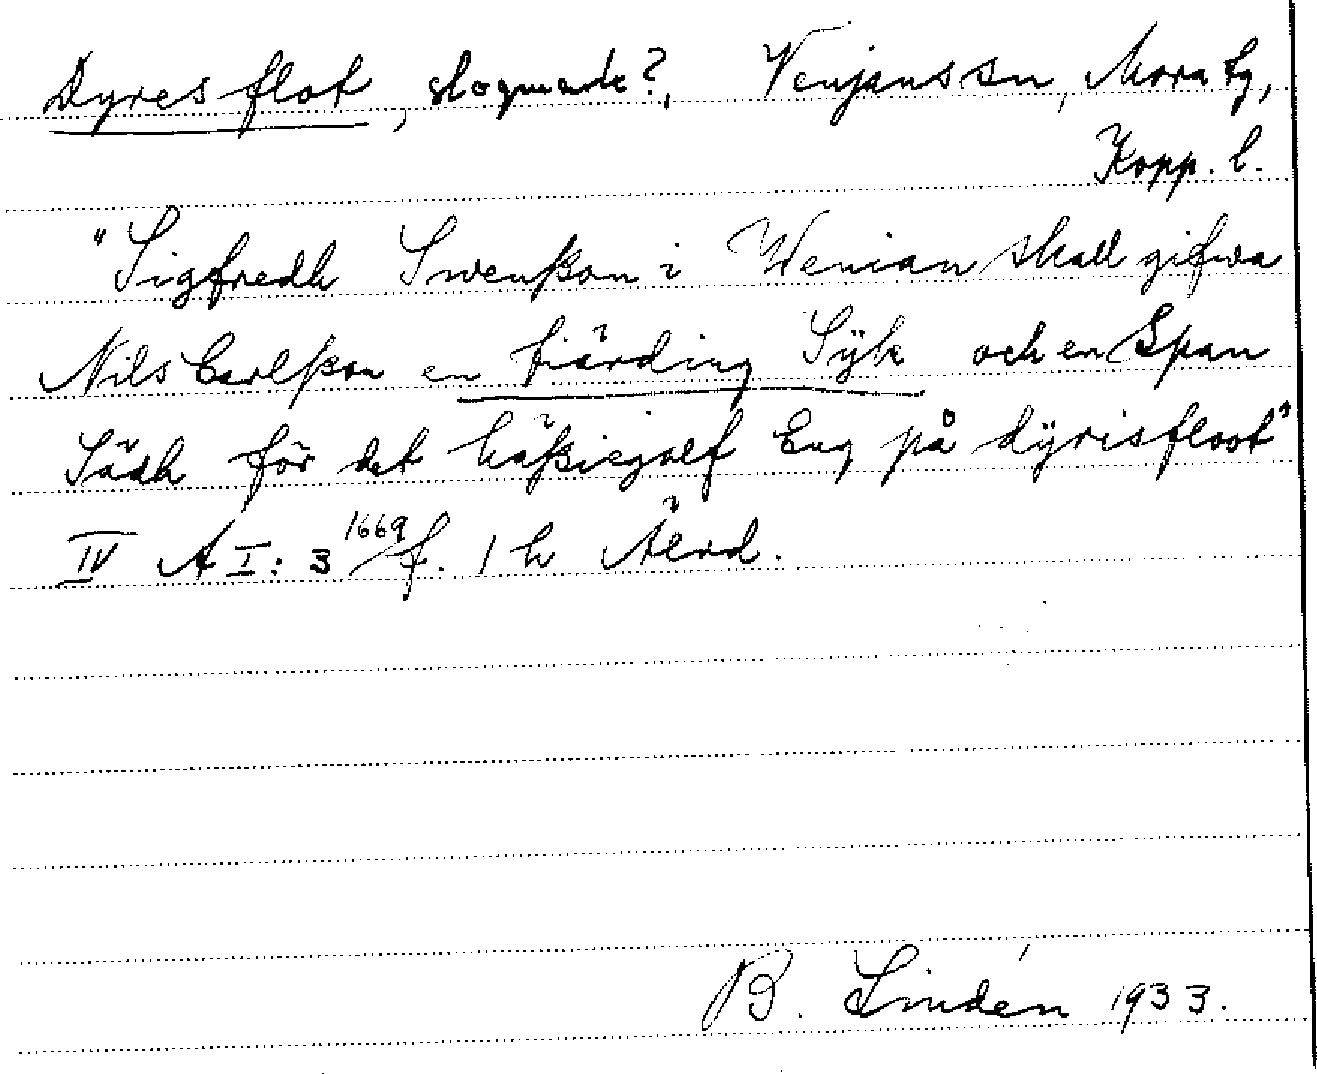 Dyresflot, slogmark?, Venjans sn, Mora tg,
Kopp. l.
"Sigfredh Swenßon i Wenian skall gifwa
Nils Carlßon en fiärding Sÿk och en Span
Sädh för det häßiegolf Eng på dÿrisfloot"
IV A I: 3 1669 f. 1 h Älvd.
B. Lindén 1933.